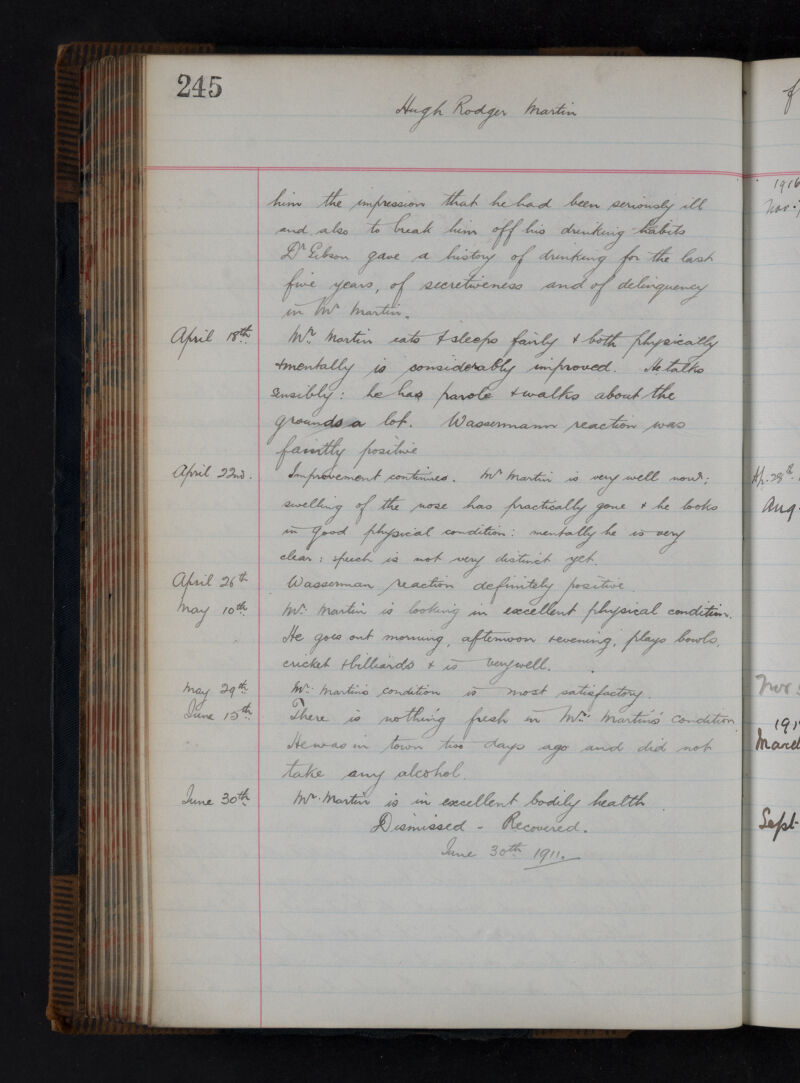 245
Hugh Rodger Martin
him the impression that he had been seriously ill
and also to break him off his drinking habits
Dr Gibson gave a history of drinking for the last
five years, of secretiveness and of delinquency
in Mr Martin.
April 18th. Mr. Martin eats & sleeps fairly & both physically
& mentally is considerably improved. He talks
sensibly: he has parole & walks about the
grounds a lot. Wassermann reaction was
faintly positive
April 22nd. Improvement continues. Mr Martin is very well now;
swelling of the nose has practically gone & he looks
in good physical condition: mentally he is very
clear: speech is not very distinct yet.
April 26th Wasserman reaction definitely positive
May 10th. Mr. Martin is looking in excellent physical condition.
He goes out morning, afternoon & evening, plays bowls,
cricket & billiards & is very well.
May 29th. Mr. Martin's condition is most satisfactory.
June 15th. There is nothing fresh in Mr. Martin's condition
He was in town two days ago and did not
take any alcohol.
June 30th. Mr. Martin is in excellent bodily health.
Dismissed - Recovered.
June 30th 1911.
1916
Nov.
Ap. 28th.
Aug.
Nov
191
March
Sept